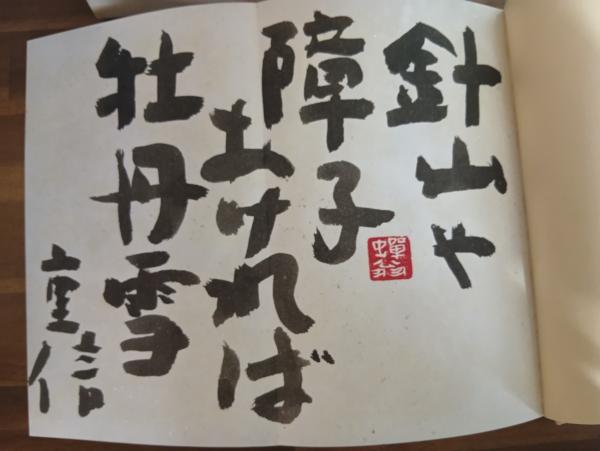 針山や
障子
あければ
牡丹雪
重信
蟬翁